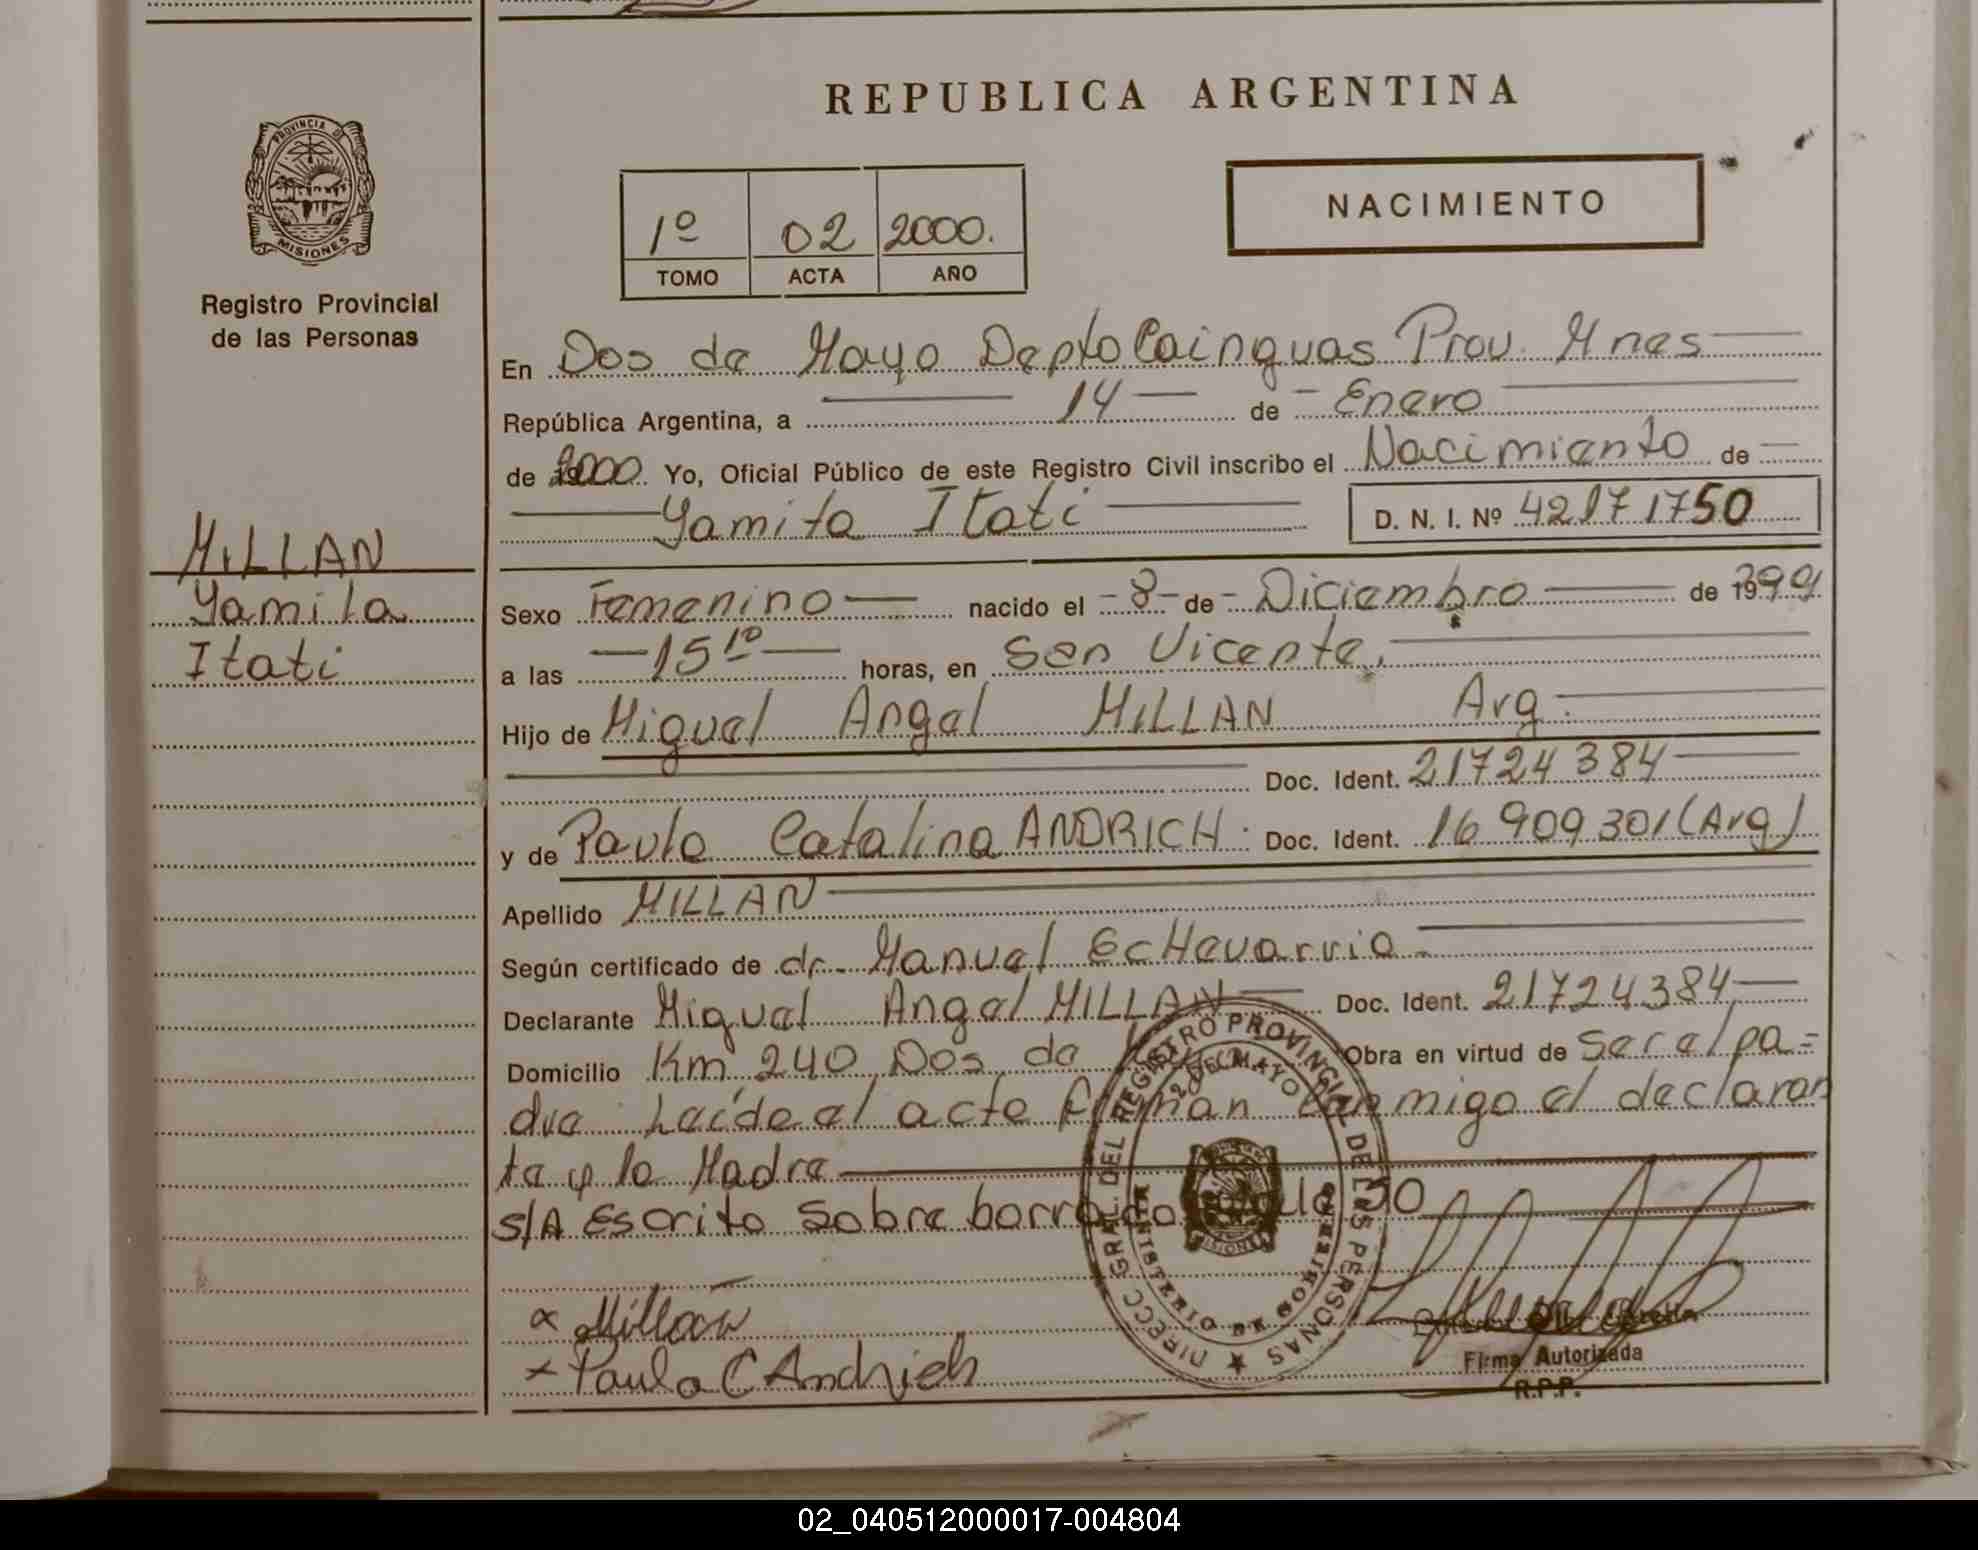 REPUBLICA ARGENTINA
PROVINCIA DE
MISIONES
Registro Provincial
de las Personas
NACIMIENTO
1º 02 2000.
TOMO ACTA AÑO
En Dos de Mayo Depto Cainguas Prov. Mnes
República Argentina, a 14 de Enero
de 2000. Yo, Oficial Público de este Registro Civil inscribo el Nacimiento de
Yamila Itati D. N. I. Nº 42171750
MILLAN
Yamila
Itati
Sexo Femenino nacido el -8- de - Diciembre de 1999
a las 15 10 horas, en San Vicente.
Hijo de Miguel Angel MILLAN Arg.
Doc. Ident. 21724384
y de Paula Catalina ANDRICH. Doc. Ident. 16909301 (Arg)
Apellido MILLAN
Según certificado de dr. Manuel EcHevarria
Declarante Miguel Angel MILLAN Doc. Ident. 21724384
Domicilio Km 240 Dos de Obra en virtud de Ser el pa=
dre Leída el acta firman conmigo el declaran
te y la Madre
S/A Escrito Sobre borrado 50
DIRECC GRAL. DEL REGISTRO PROVINCIAL DE LAS PERSONAS
MINISTERIO DE GOBIERNO
MISIONES
x Millán
x Paula C Andrich
Firma Autorizada
R.P.P.
02_040512000017-004804